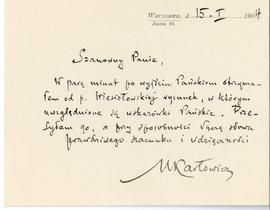 Warszawa, d. 15-I 1904
Jasna 10.
Szanowny Panie,
W parę minut po wyjściu Pańskiem otrzyma-
łem od p. Wiesiołowskiej rysunek, w którym
uwzględnione są wskazówki Pańskie. Prze-
syłam go, a przy sposobności łączę słowa
prawdziwego szacunku i wdzięczności
MKarłowicz